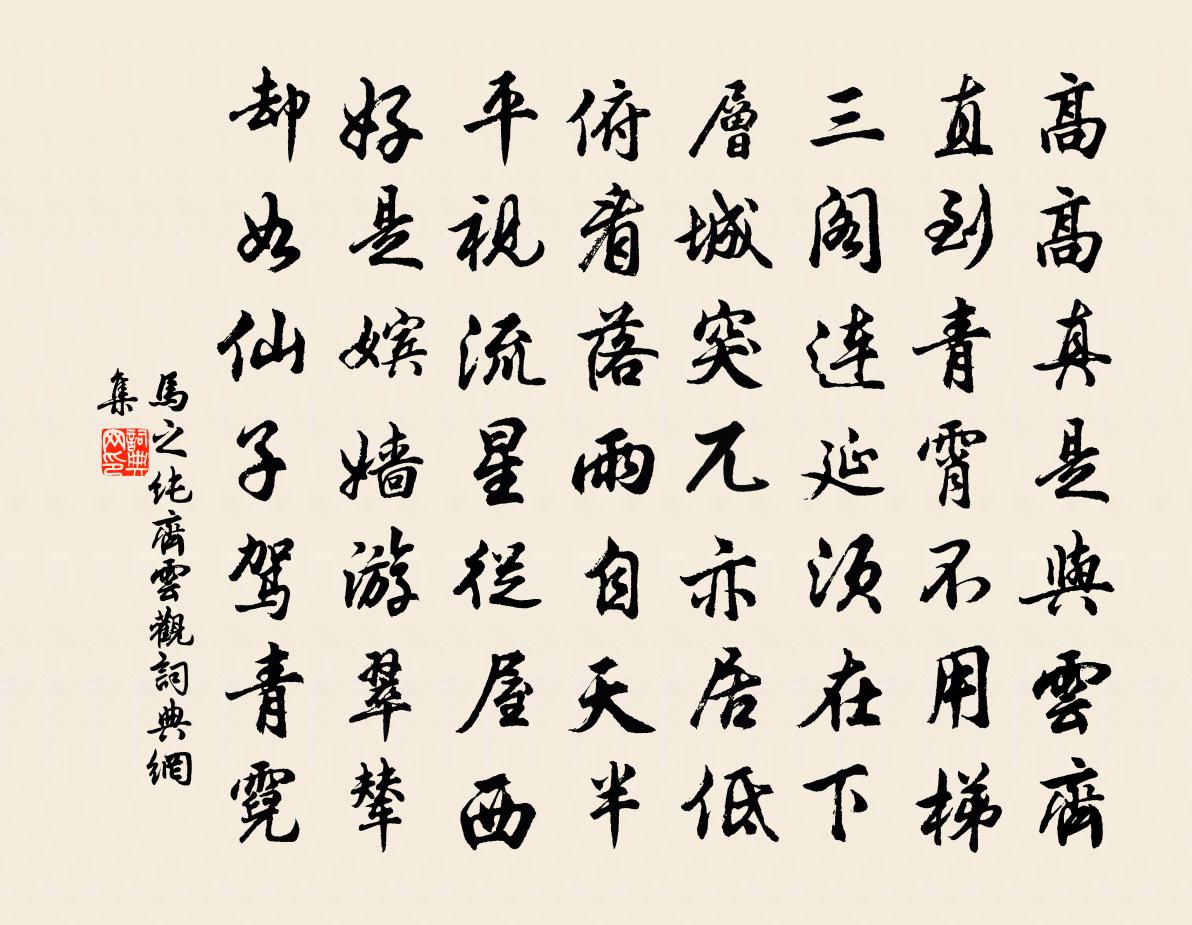 高高真是與雲齊
直到青霄不用梯
三閣連延須在下
層城突兀亦居低
俯看落雨自天半
平視流星從屋西
好是嬪嬙游翠輦
却如仙子駕青霓
馬之純齊雲觀詞典網
集
詞典
网印